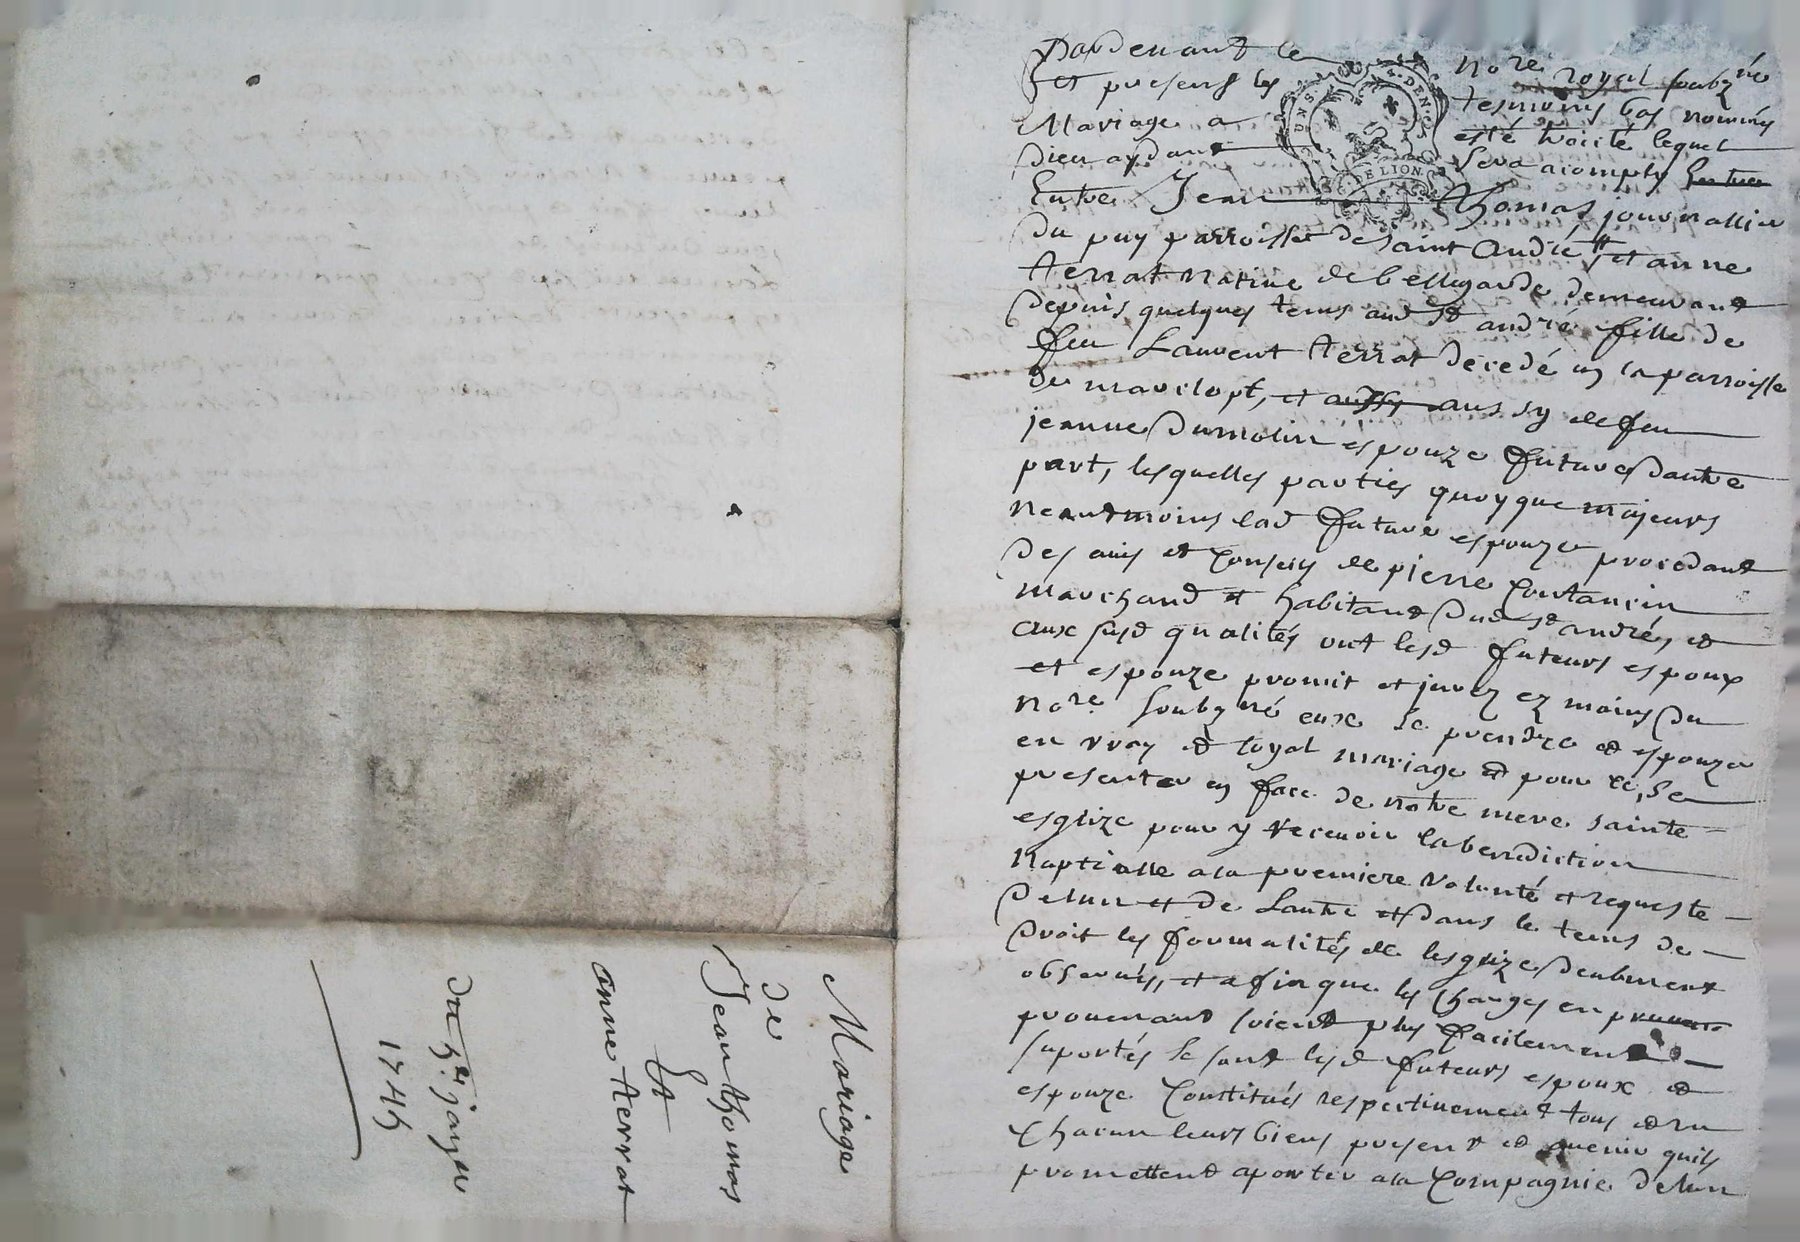 Mariage
de
Jean thomas
Et
anne terrat
du 5e janvier
1745
Pardevant le nore royal soubzné
Et presens les tesmoins bas nommés
Mariage a esté traité lequel
dieu aydant sera acomply
Entre Jean thomas journallier
du puy parroisse de saint André Et anne
terrat native de bellegarde demeurant
depuis quelques tems aud st andré fille de
feu Laurent terrat decedé en la parroisse
de marclopt, et aussy de feu
jeanne Dumolin espouze future dautre
part, lesquelles parties quoyque majeurs
neantmoins lad future espouze procedant
des avis et conseil de pierre Coutancin
marchand et habitant dud st andré, et
aux susd qualités ont lesd futeurs espoux
et espouze promit et jurez ez mains du
nore soubzné eux se prendre et espouze
en vray et loyal mariage et pour ce, se
presenter en face de notre mere sainte
esglize pour y recevoir la benediction
Nuptialle a la premiere volunté et requeste
delun et de Lautre et dans le tems de
droit les formalités de lesglize deubment
observées, et afin que les charges en
provenant soient plus facilement
suportés se sont lesd futeurs espoux et
espouze Constitués respectivement tous et un
chacun leurs biens present et avenir quils
promettent aporter a la Compagnie delun
DE LION